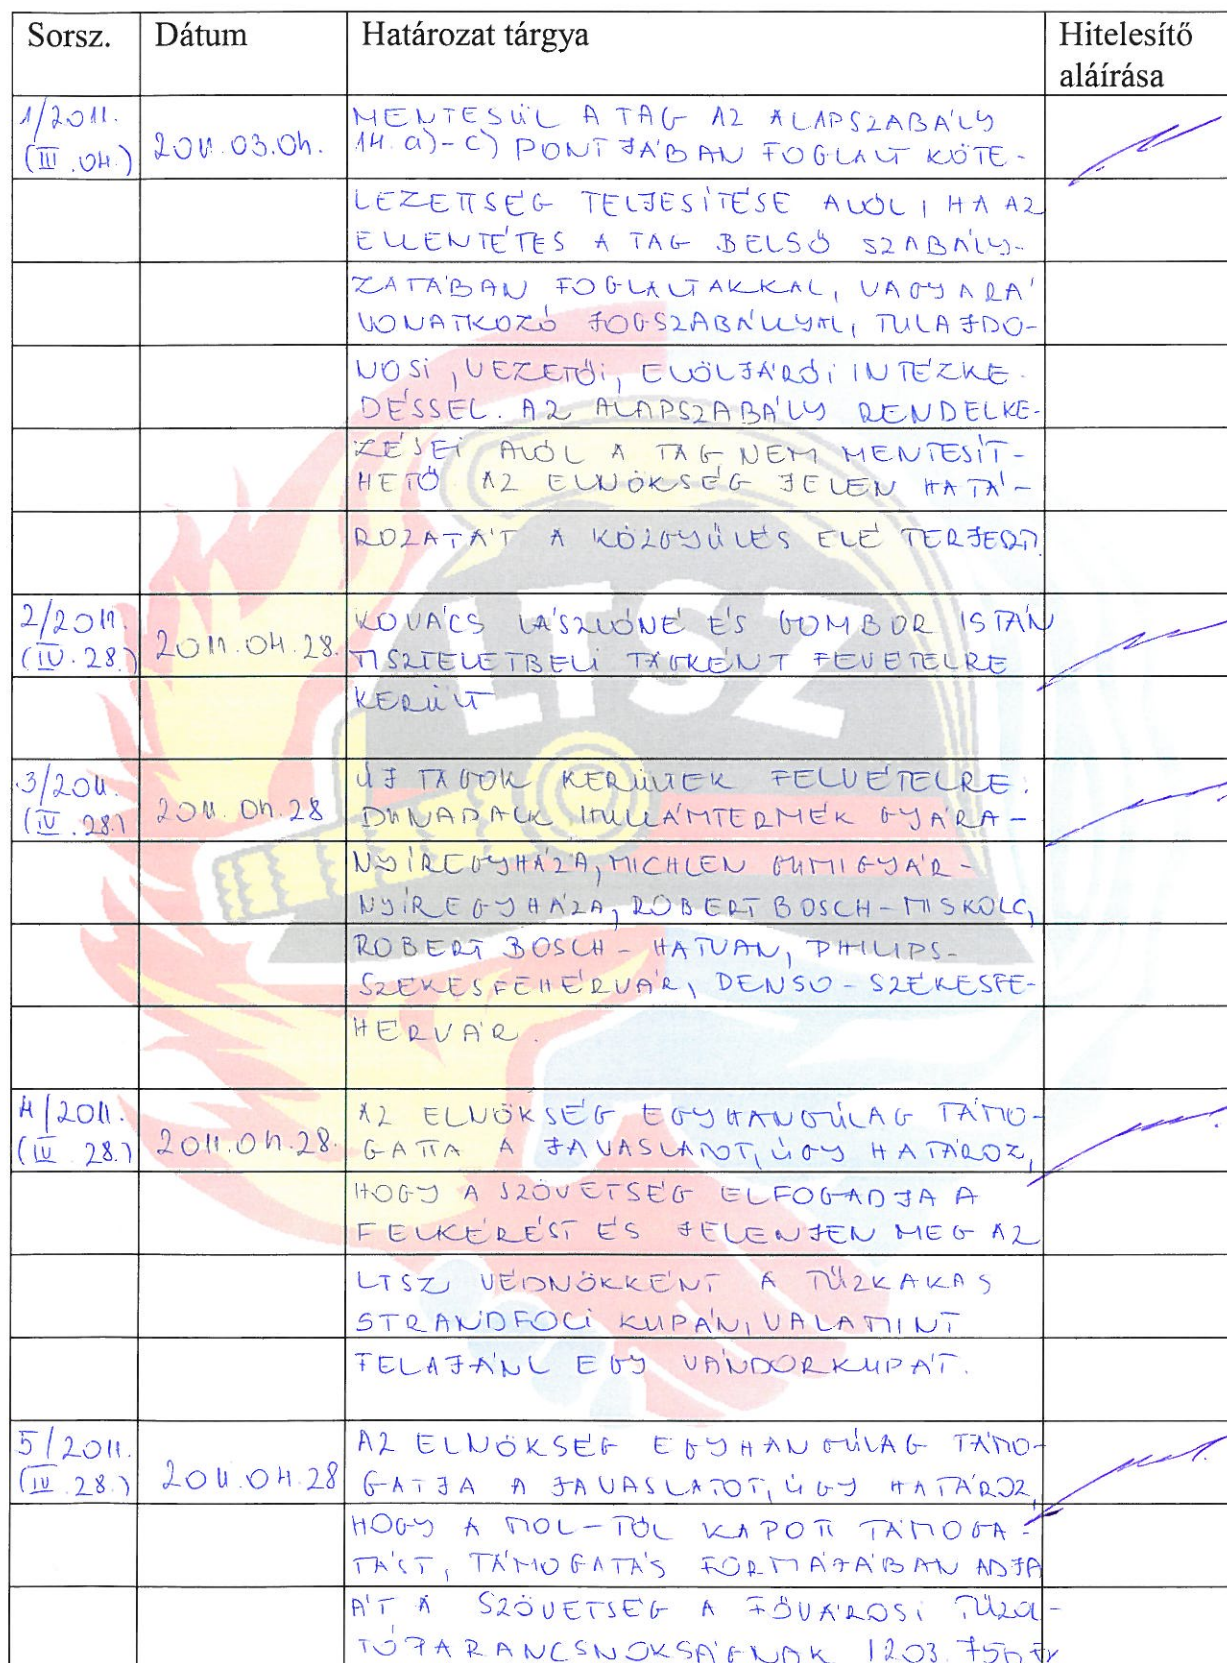 Sorsz. Dátum Határozat tárgya Hitelesítő aláírása
1/2011. (III.04.) 2011.03.04. MENTESÜL A TAG AZ ALAPSZABÁLY
14. a)-c) PONTJÁBAN FOGLALT KÖTE-
LEZETTSÉG TELJESÍTÉSE ALÓL, HA AZ
ELLENTÉTES A TAG BELSŐ SZABÁLY-
ZATÁBAN FOGLALTAKKAL, VAGY A RÁ
VONATKOZÓ JOGSZABÁLLYAL, TULAJDO-
NOSI, VEZETŐI, ELÖLJÁRÓI INTÉZKE-
DÉSSEL. AZ ALAPSZABÁLY RENDELKE-
ZÉSEI ALÓL A TAG NEM MENTESÍT-
HETŐ AZ ELNÖKSÉG JELEN HATÁ-
ROZATÁT A KÖZGYŰLÉS ELÉ TERJESZTI
LTSZ
2/2011. (IV.28.) 2011.04.28. KOVÁCS LÁSZLÓNÉ ÉS GOMBOR ISTÁN
TISZTELETBELI TAGKÉNT FEVÉTELRE
KERÜLT
3/2011. (IV.28.) 2011.04.28 ÚJ TAGOK KERÜLTEK FELVÉTELRE:
DUNAPACK HULLÁMTERMÉK GYÁRA-
NYÍREGYHÁZA, MICHLEN GUMIGYÁR-
NYÍREGYHÁZA, ROBERT BOSCH-MISKOLC,
ROBERT BOSCH - HATVAN, PHILIPS-
SZÉKESFEHÉRVÁR, DENSO - SZÉKESFE-
HÉRVÁR.
4/2011. (IV.28.) 2011.04.28. AZ ELNÖKSÉG EGYHANGÚLAG TÁMO-
GATTA A JAVASLATOT, ÚGY HATÁROZ,
HOGY A SZÖVETSÉG ELFOGADJA A
FELKÉRÉST ÉS JELENJEN MEG AZ
LTSZ VÉDNÖKKÉNT A TŰZKAKAS
STRANDFOCI KUPÁN, VALAMINT
FELAJÁNL EGY VÁNDORKUPÁT.
5/2011. (IV.28.) 2011.04.28 AZ ELNÖKSÉG EGYHANGÚLAG TÁMO-
GATJA A JAVASLATOT, ÚGY HATÁROZ,
HOGY A MOL-TÓL KAPOTT TÁMOGA-
TÁST, TÁMOGATÁS FORMÁJÁBAN ADJA
ÁT A SZÖVETSÉG A FŐVÁROSI TŰZOL-
TÓPARANCSNOKSÁGNAK 1203.750 Ft